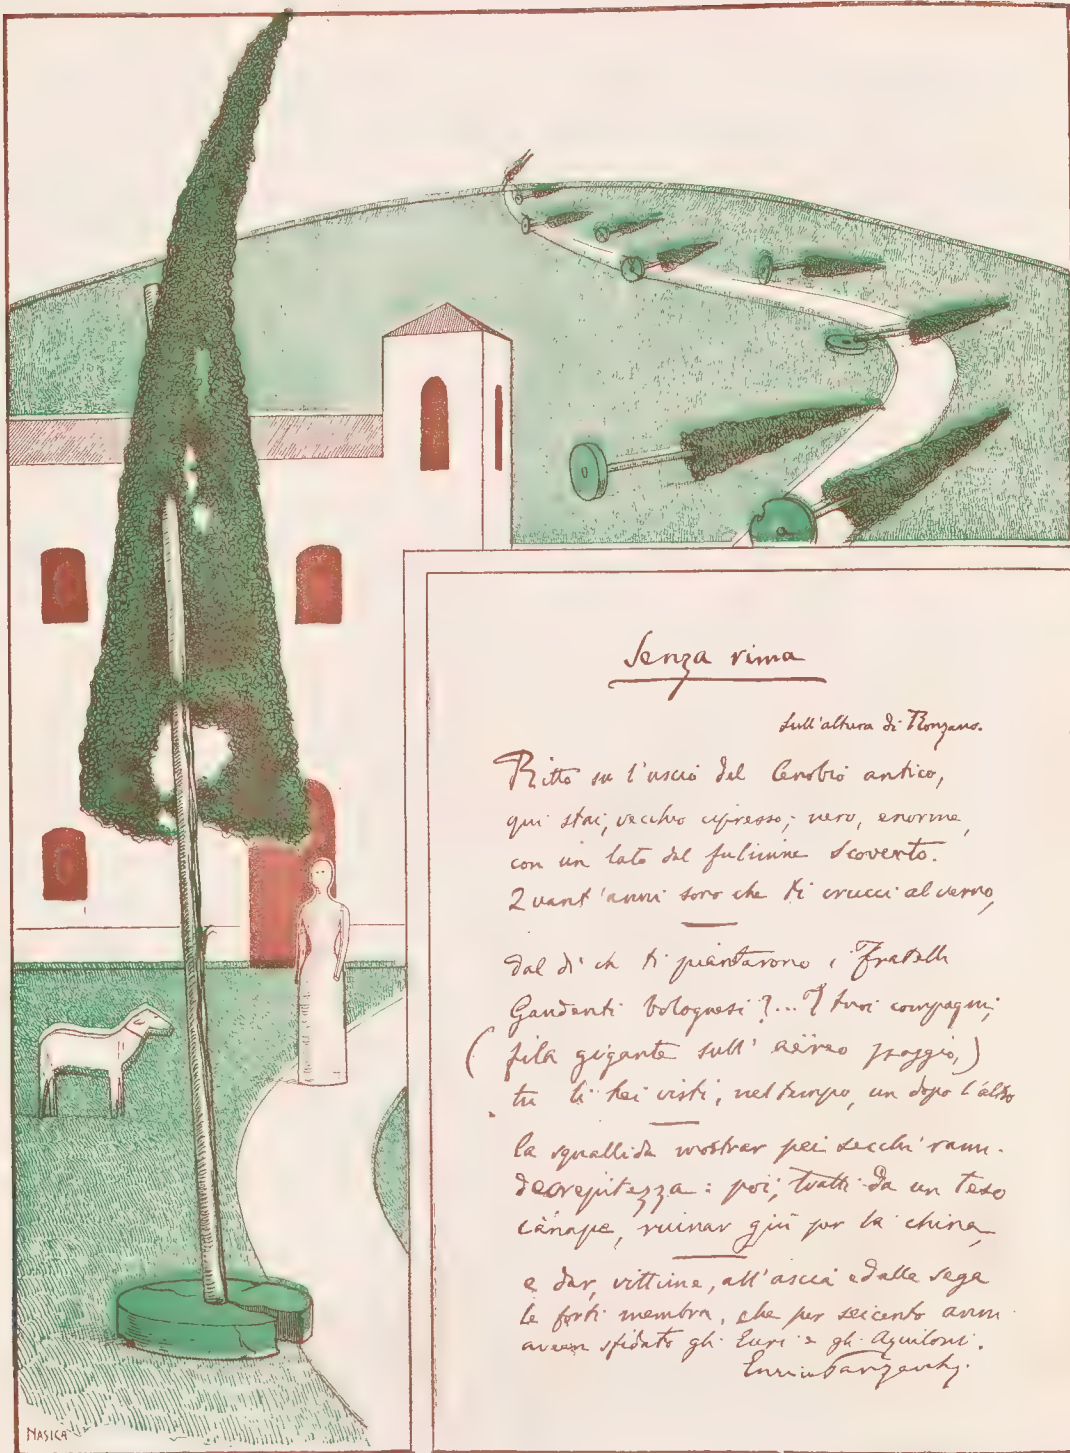 Senza rima
sull'altura di Ronzano.
Ritto su l'uscio del Cenobio antico,
qui stai, vecchio cipresso; nero, enorme,
con un lato dal fulmine scoverto.
Quant'anni sono che ti crucci al verno,
dal dì che ti piantarono i Fratelli
Gaudenti bolognesi?... I tuoi compagni,
(fila gigante sull' aëreo poggio,)
tu li hai visti, nel tempo, un dopo l'altro
la squallida mostrar pei secchi rami
decrepitezza: poi, tratti da un teso
cànape, ruinar giù per la china,
e dar, vittime, all'ascia e dalle sega
le forti membra, che per seicento anni
avean sfidato gli Euri e gli Aquiloni.
Enrico Panzacchi.
NASICA